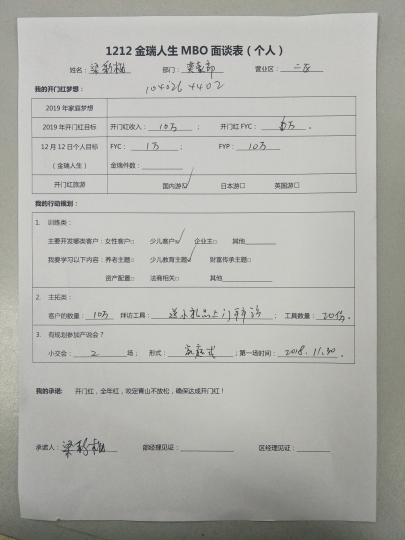 1212 金瑞人生 MBO 面谈表（个人）
姓名： 部门： 营业区：二区
我的开门红梦想： 104026 4402
2019 年家庭梦想
2019 年开门红目标 开门红收入：10万； 开门红 FYC：万。
12 月 12 日个人目标（金瑞人生） FYC：1万； FYP：10万
金瑞件数：
开门红旅游 国内游☑ 日本游□ 英国游□
我的行动规划：
1. 训练类：
主要开发哪类客户：女性客户□ 少儿客户☑ 企业主□ 其他
我要学习以下内容：养老主题□ 少儿教育主题☑ 财富传承主题□
资产配置□ 法商相关□ 其他
2. 主拓类：
客户的数量：10万 拜访工具：送小礼品上门拜访； 工具数量：20份。
3. 有规划参加产说会？
小交会：2场； 形式：家庭式；第一场时间：2018.11.30.
我的承诺： 开门红，全年红，咬定青山不放松，确保达成开门红！
承诺人： 部经理见证： 区经理见证：